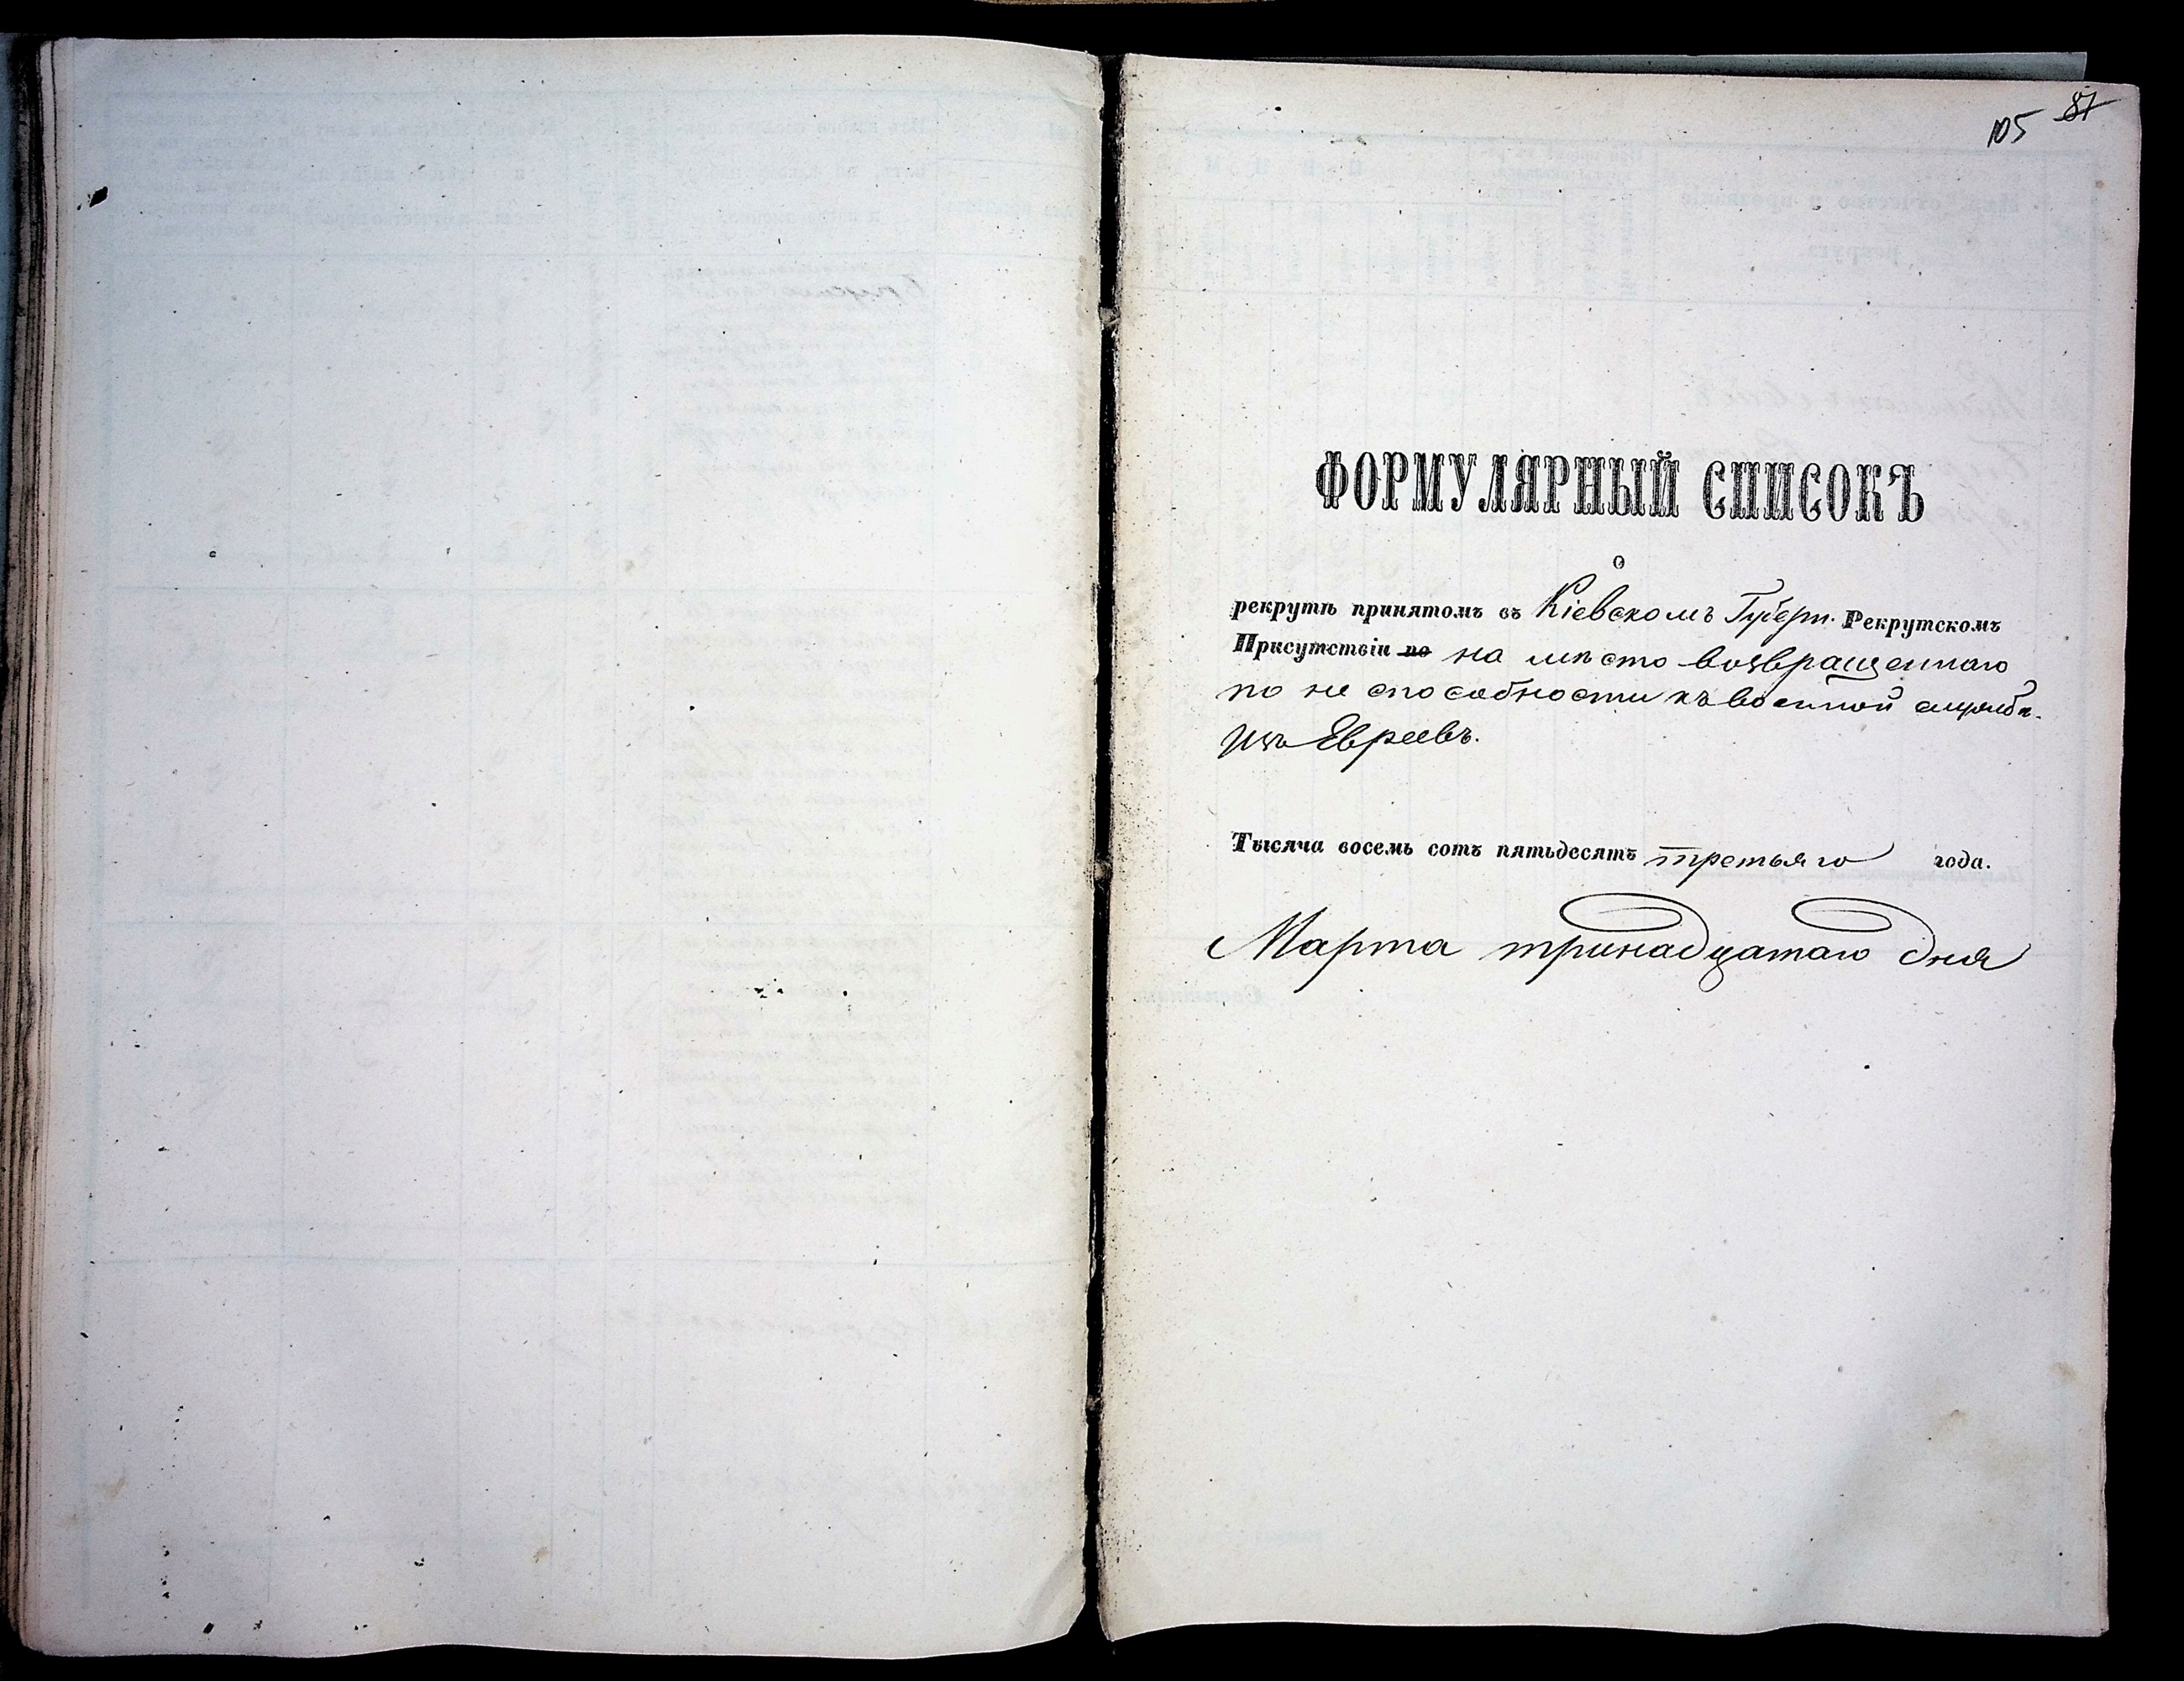 105 87
ФОРМУЛЯРНЫЙ СПИСОКЪ
о
рекрутѣ принятомъ въ Кіевскомъ Губерн. Рекрутскомъ
Присутствіи по на мѣсто возвращеннаго
по не способности къ военной службѣ.
Изъ Евреевъ.
Тысяча восемь сотъ пятьдесятъ третьяго года.
Марта тринадцатаго дня